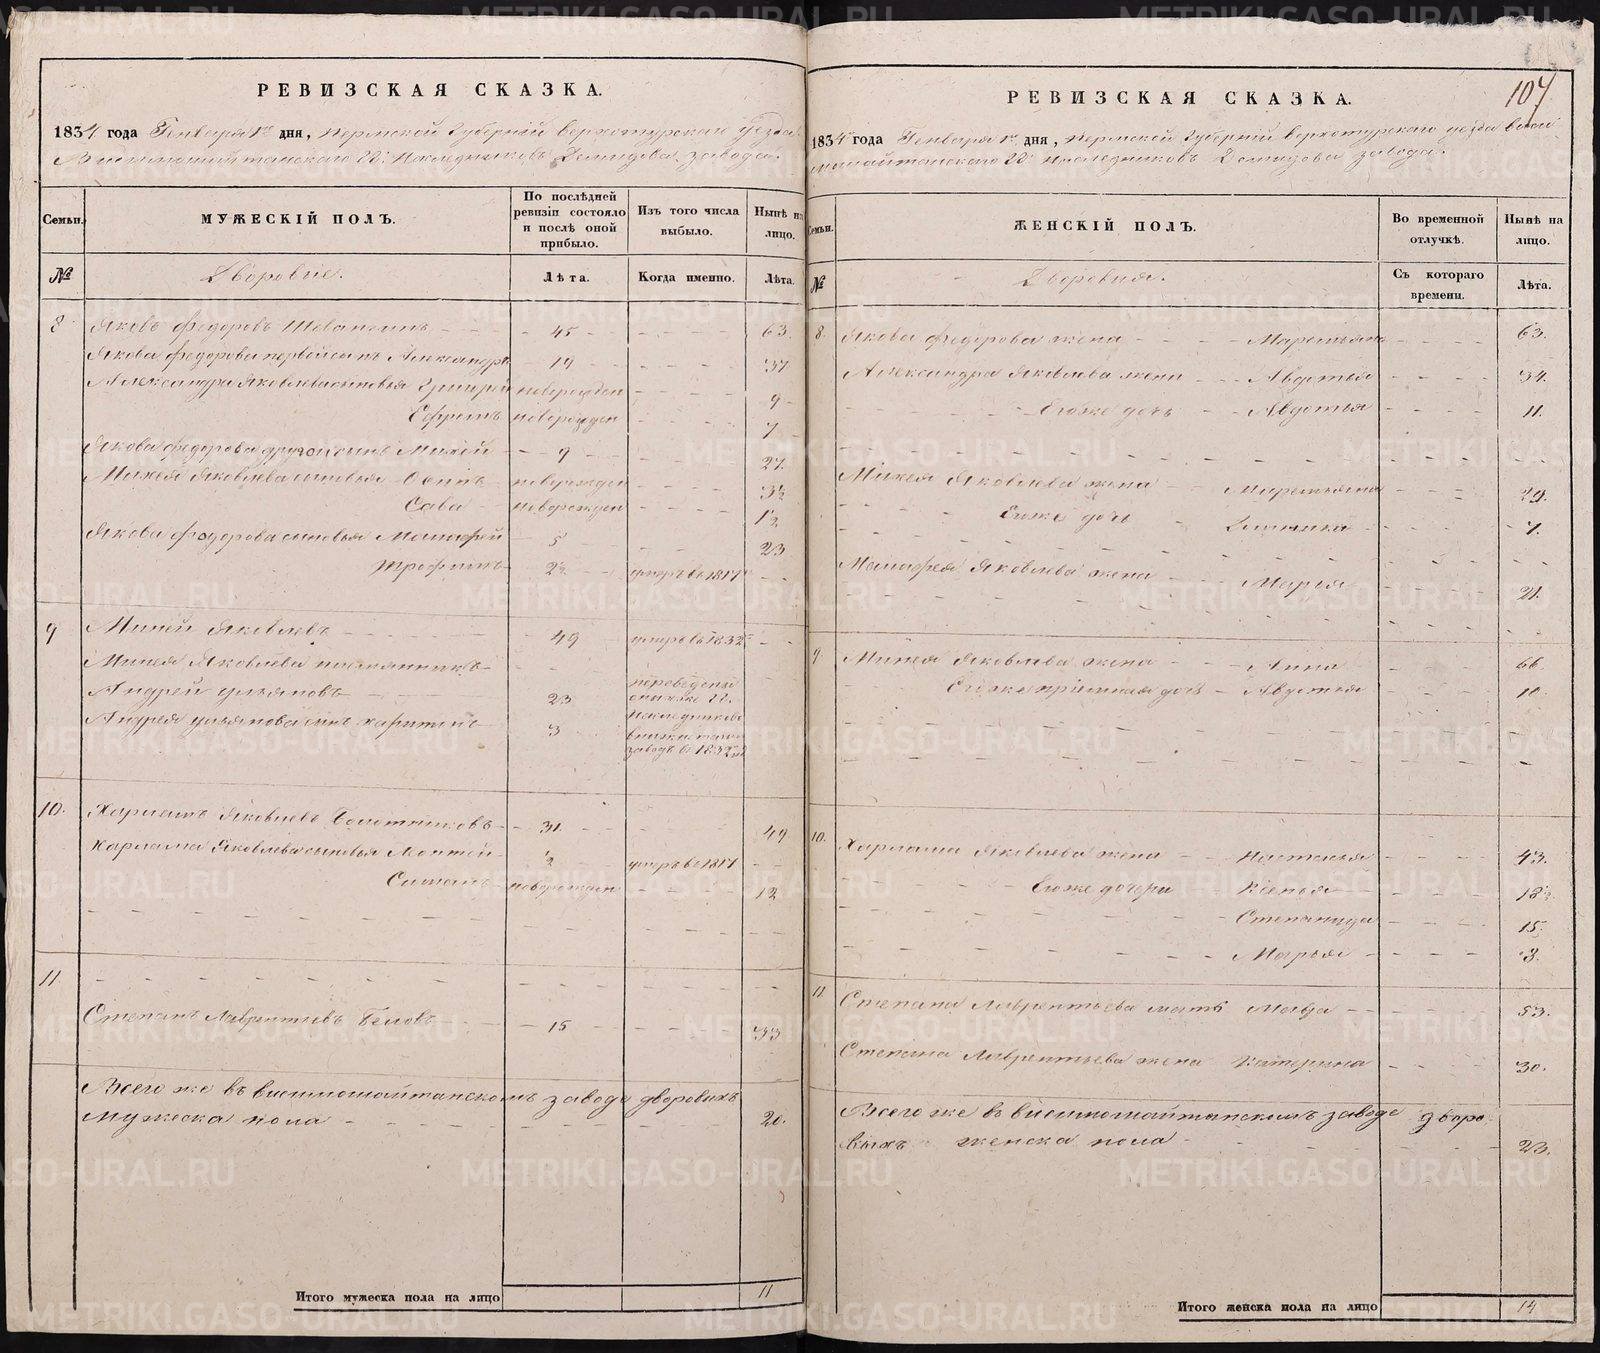 РЕВИЗСКАЯ СКАЗКА.
1834 года Генваря 1го дня, Пермской Губернiи Верхотурскаго уезда
Висимошайтанскаго Гг. Наследниковъ Демидова завода.
Семьи.
МУЖЕСКІЙ ПОЛЪ.
По послѣдней ревизіи состояло и послѣ оной прибыло.
Изъ того числа выбыло.
Нынѣ на лицо.
№
Дворовые.
Лѣта.
Когда именно.
Лѣта.
8 Яковъ Федоровъ 45 63
Якова Федорова первой сынъ Александръ 19 37
Александра Яковлева сыновья Григорiй новорожден 9
Ефремъ новорожден 7
Якова Федорова другой сынъ Михей 9 27
Михея Яковлева сыновья Осипъ новорожден 3½
Сава новорожден ½
Якова Федорова сыновья 5 23
Трофимъ 2½ умеръ в 1817
9 Миней Яковлевъ 49 умеръ в 1832
Минея Яковлева племянникъ
Андрей Ульяновъ 23
Андрея Ульянова сынъ Харитонъ 3
переведены
Гг.
Наследниковъ
заводъ в 1832
10. Харламъ Яковлевъ Болотниковъ 31 49
Харлама Яковлева сыновья ½ умеръ в 1817
новорожден 12
11.
Степанъ Лаврентьевъ Беловъ 15 33
Всего же въ Висимошайтанскомъ заводе дворовыхъ
мужеска пола 20.
Итого мужеска пола на лицо 11
107
РЕВИЗСКАЯ СКАЗКА.
1834 года Генваря 1го дня, Пермской Губернiи Верхотурскаго уезда Виси
мошайтанскаго Гг. Наследниковъ Демидова завода.
Семьи.
ЖЕНСКІЙ ПОЛЪ.
Во временной отлучкѣ.
Нынѣ на лицо.
№
Дворовыя.
Съ котораго времени.
Лѣта.
8. Якова Федорова жена Маремьяна 63.
Александра Яковлева жена Авдотья 34.
Егоже дочь Авдотья 11.
Михея Яковлева жена Маремьяна 29.
Егоже дочь 7.
Яковлева жена Марья 21.
9. Минея Яковлева жена Анна 66.
Егоже прiемная дочь Авдотья
10. Харлама Яковлева жена Настасья 43.
Егоже дочери Ксенья 18½
Степанида 15
Марья 3.
11 Степана Лаврентьева мать Мавра 53.
Степана Лаврентьева жена Катерина 30.
Всего же въ Висимошайтанскомъ заводе дворо
выхъ женска пола 23.
Итого женска пола на лицо 14
METRIKI.GASO-URAL.RU